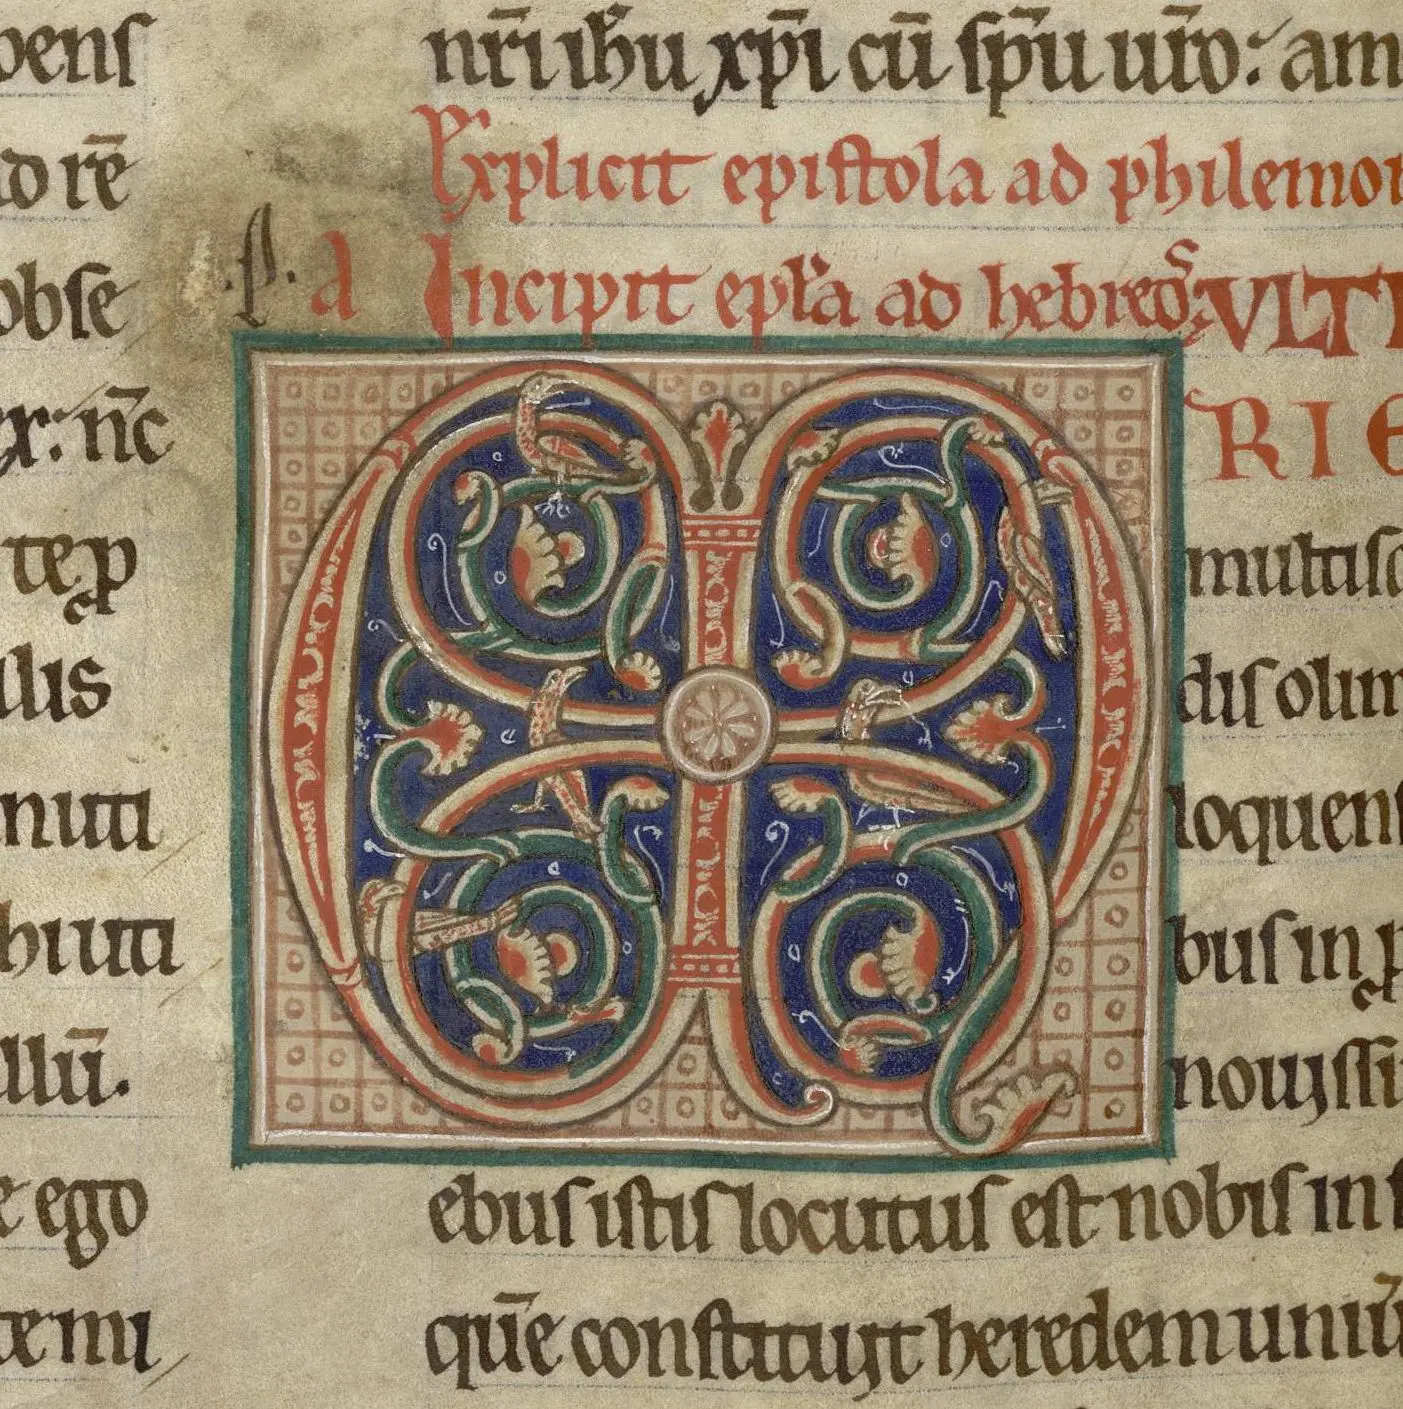 pens
ad rē
obse
ex: nc̄
tēp
llis
nuta
hiuta
llū.
e ego
te mi
nr̄i ihū xp̄i cū sp̄u ur̄o: am
Explicit epistola ad philemon
.p. a Incipit epl'a ad hebreoṣ VLTI
M RIE
multisq
dis olim
loquens
bus in p
nouissi
ebus istis locutus est nobis in f
quē constituit heredem uniū